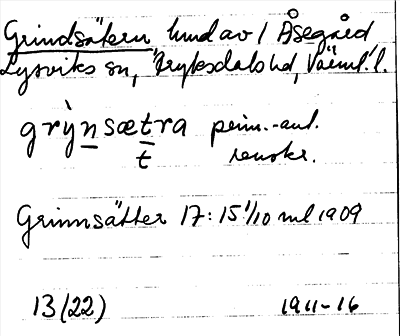 Grindsätern hmd av 1 Åsegård
Lysviks sn, Fryksdals hd, Värml. l.
grỳnsætra prim.-uul.
t renskr.
Grinnsätter 17: 15 1/10 ml 1909
13 (22) 1911-16